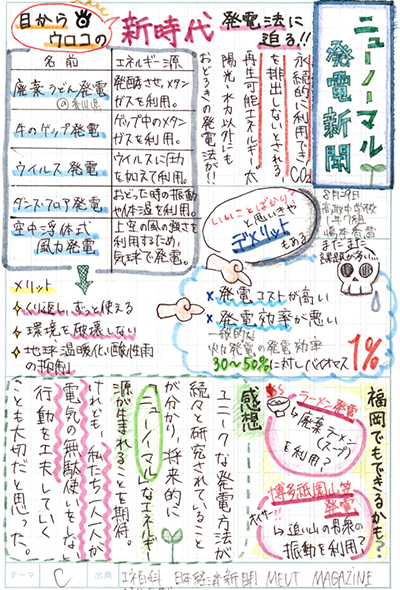 ニューノーマル
発電新聞
8月9日
1年1組
まだまだ
課題が多い…
目から
ウロコの
新時代
発電法に
迫る!!
永続的に利用でき、CO₂
を排出しないとされる
再生可能エネルギー。太
陽光・水力以外にも
おどろきの発電法が!!
名前
エネルギー源
廃棄うどん発電
の香川県
発酵させ、メタン
ガスを利用。
牛のゲップ発電
ゲップ中のメタン
ガスを利用。
ウイルス発電
ウイルスに圧力
を加えて利用。
ダンスフロア発電
おどった時の振動
や体温を利用。
空中浮体式
風力発電
上空の風の強さを
利用するため、
気球で発電。
メリット
くり返し、ずっと使える
環境を破壊しない
地球温暖化・酸性雨
の抑制
いいことばかり?
と思いきや
デメリット
もある
×発電コストが高い
×発電効率が悪い
一般的な
火力発電の発電効率
30~50%に対しバイオマス
1%
福岡でもできるかも?
ラーメン発電
↳廃棄ラーメン
(スープ)
を利用?
博多祇園山笠
発電
オイサー!!
↳追い山の月泉の
振動を利用?
感想
ユニークな発電方法が
続々と研究されていること
が分かり、将来的に
「ニューノーマル」なエネルギー
源が生まれることを期待。
されども、私たち一人一人が
電気の無駄使いをしない
行動を工夫していく
ことも大切だと思った。
テーマ
C
出典
日本経済新聞 MEUT MAGAZINE